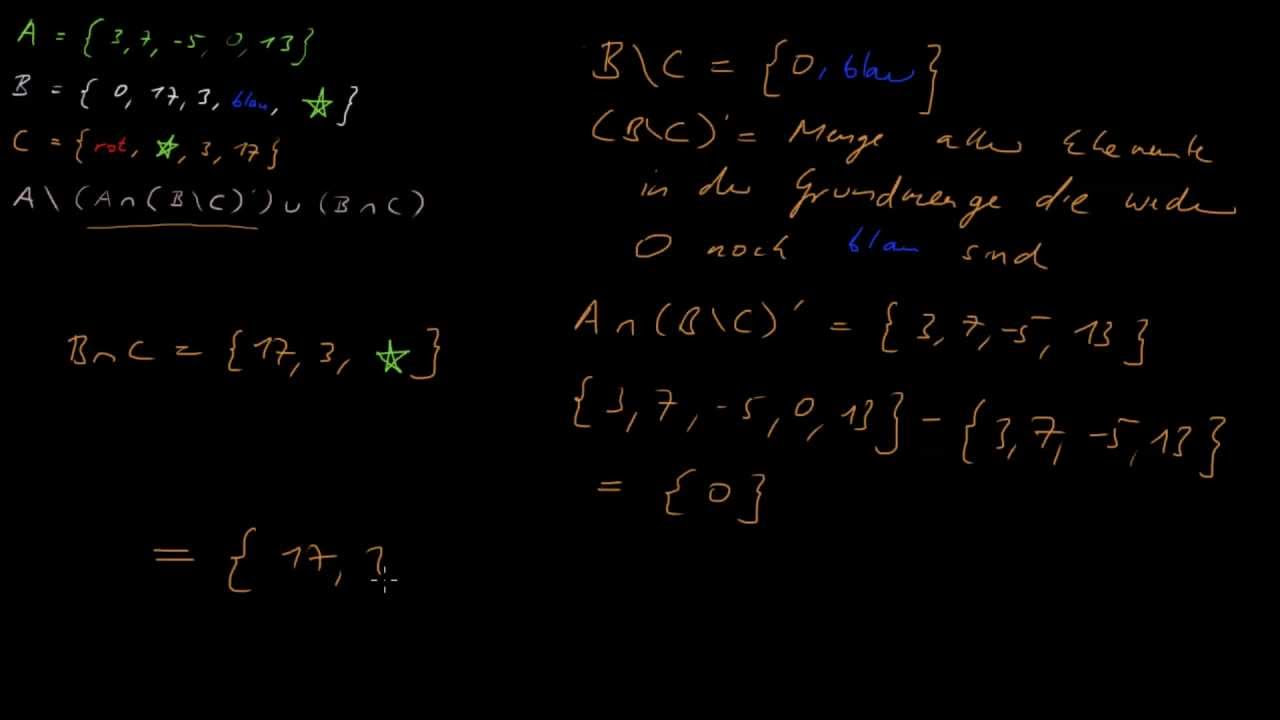 A = {3, 7, -5, 0, 13}
B = { 0, 17, 3, blau, ☆ }
C = {rot, ☆, 3, 17}
A \ (A ∩ (B \ C)') ∪ (B ∩ C)
B ∩ C = {17, 3, ☆ }
= { 17, 3
B \ C = {0, blau}
(B \ C)' = Menge aller Elemente
in der Grundmenge die weder
0 noch blau sind
A ∩ (B \ C)' = {3, 7, -5, 13}
{3, 7, -5, 0, 13} - {3, 7, -5, 13}
= {0}